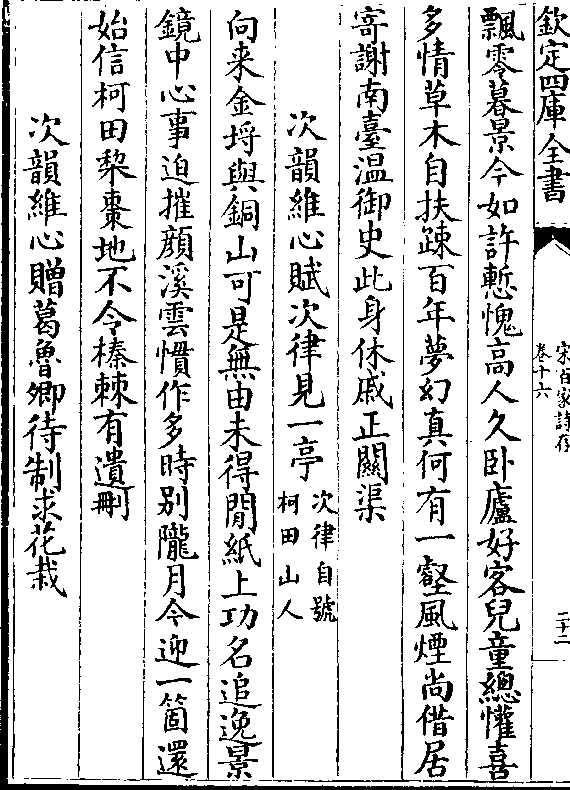 欽定四庫全書
宋百家詩存
卷十六
二十二
飄零暮景今如許慙愧高人久卧廬好客兒童總懽喜
多情草木自扶踈百年夢幻真何有一壑風煙尚借居
寄謝南臺温御史此身休戚正關渠
次韻維心賦次律見一亭
次律自號
柯田山人
向来金埒與銅山可是無由未得閒紙上功名追逸景
鏡中心事迫摧顔溪雲慣作多時别隴月今迎一箇還
始信柯田棃棗地不令榛棘有遺刪
次韻維心贈葛魯卿待制求花栽